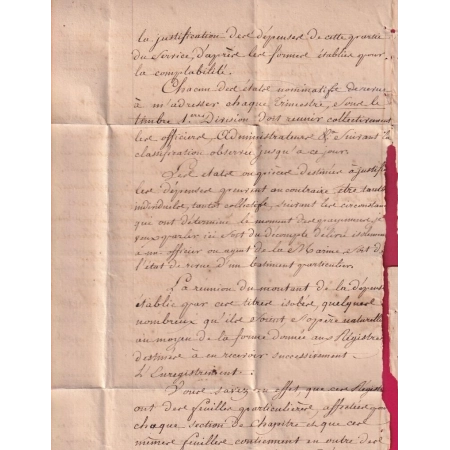 la justification des dépenses de cette partie
du Service, d'après les formes établies pour
la comptabilité.
Chacun des états nominatifs de revue
à m'adresser chaque trimestre, sous le
timbre 1ère Division doit réunir collectivement
les officiers Administrateurs &a Suivant la
classification observée jusqu'à ce jour.
Les états ou pièces destinés à justifi
les dépenses peuvent au contraire, être tantôt
individuels, tantôt collectifs, suivant les circonstan
qui ont déterminé le moment des payements, je
veux parler ici soit du décompte délivré isolément
à un officier ou agent de la Marine, soit de
l'état de revue d'un batiment particulier.
La réunion du montant de la dépense
établie par ces titres isolés, quelques
nombreux qu'ils soient s'opère naturelle
au moyen de la forme donnée aux Régistres
destinés à en recevoir successivement
l'Enregistrement :
Vous savez en effet, que ces Régist
ont des feuilles particulières, affectées
chaque section de Chapitre et que ces
mêmes feuilles contiennent en outre des